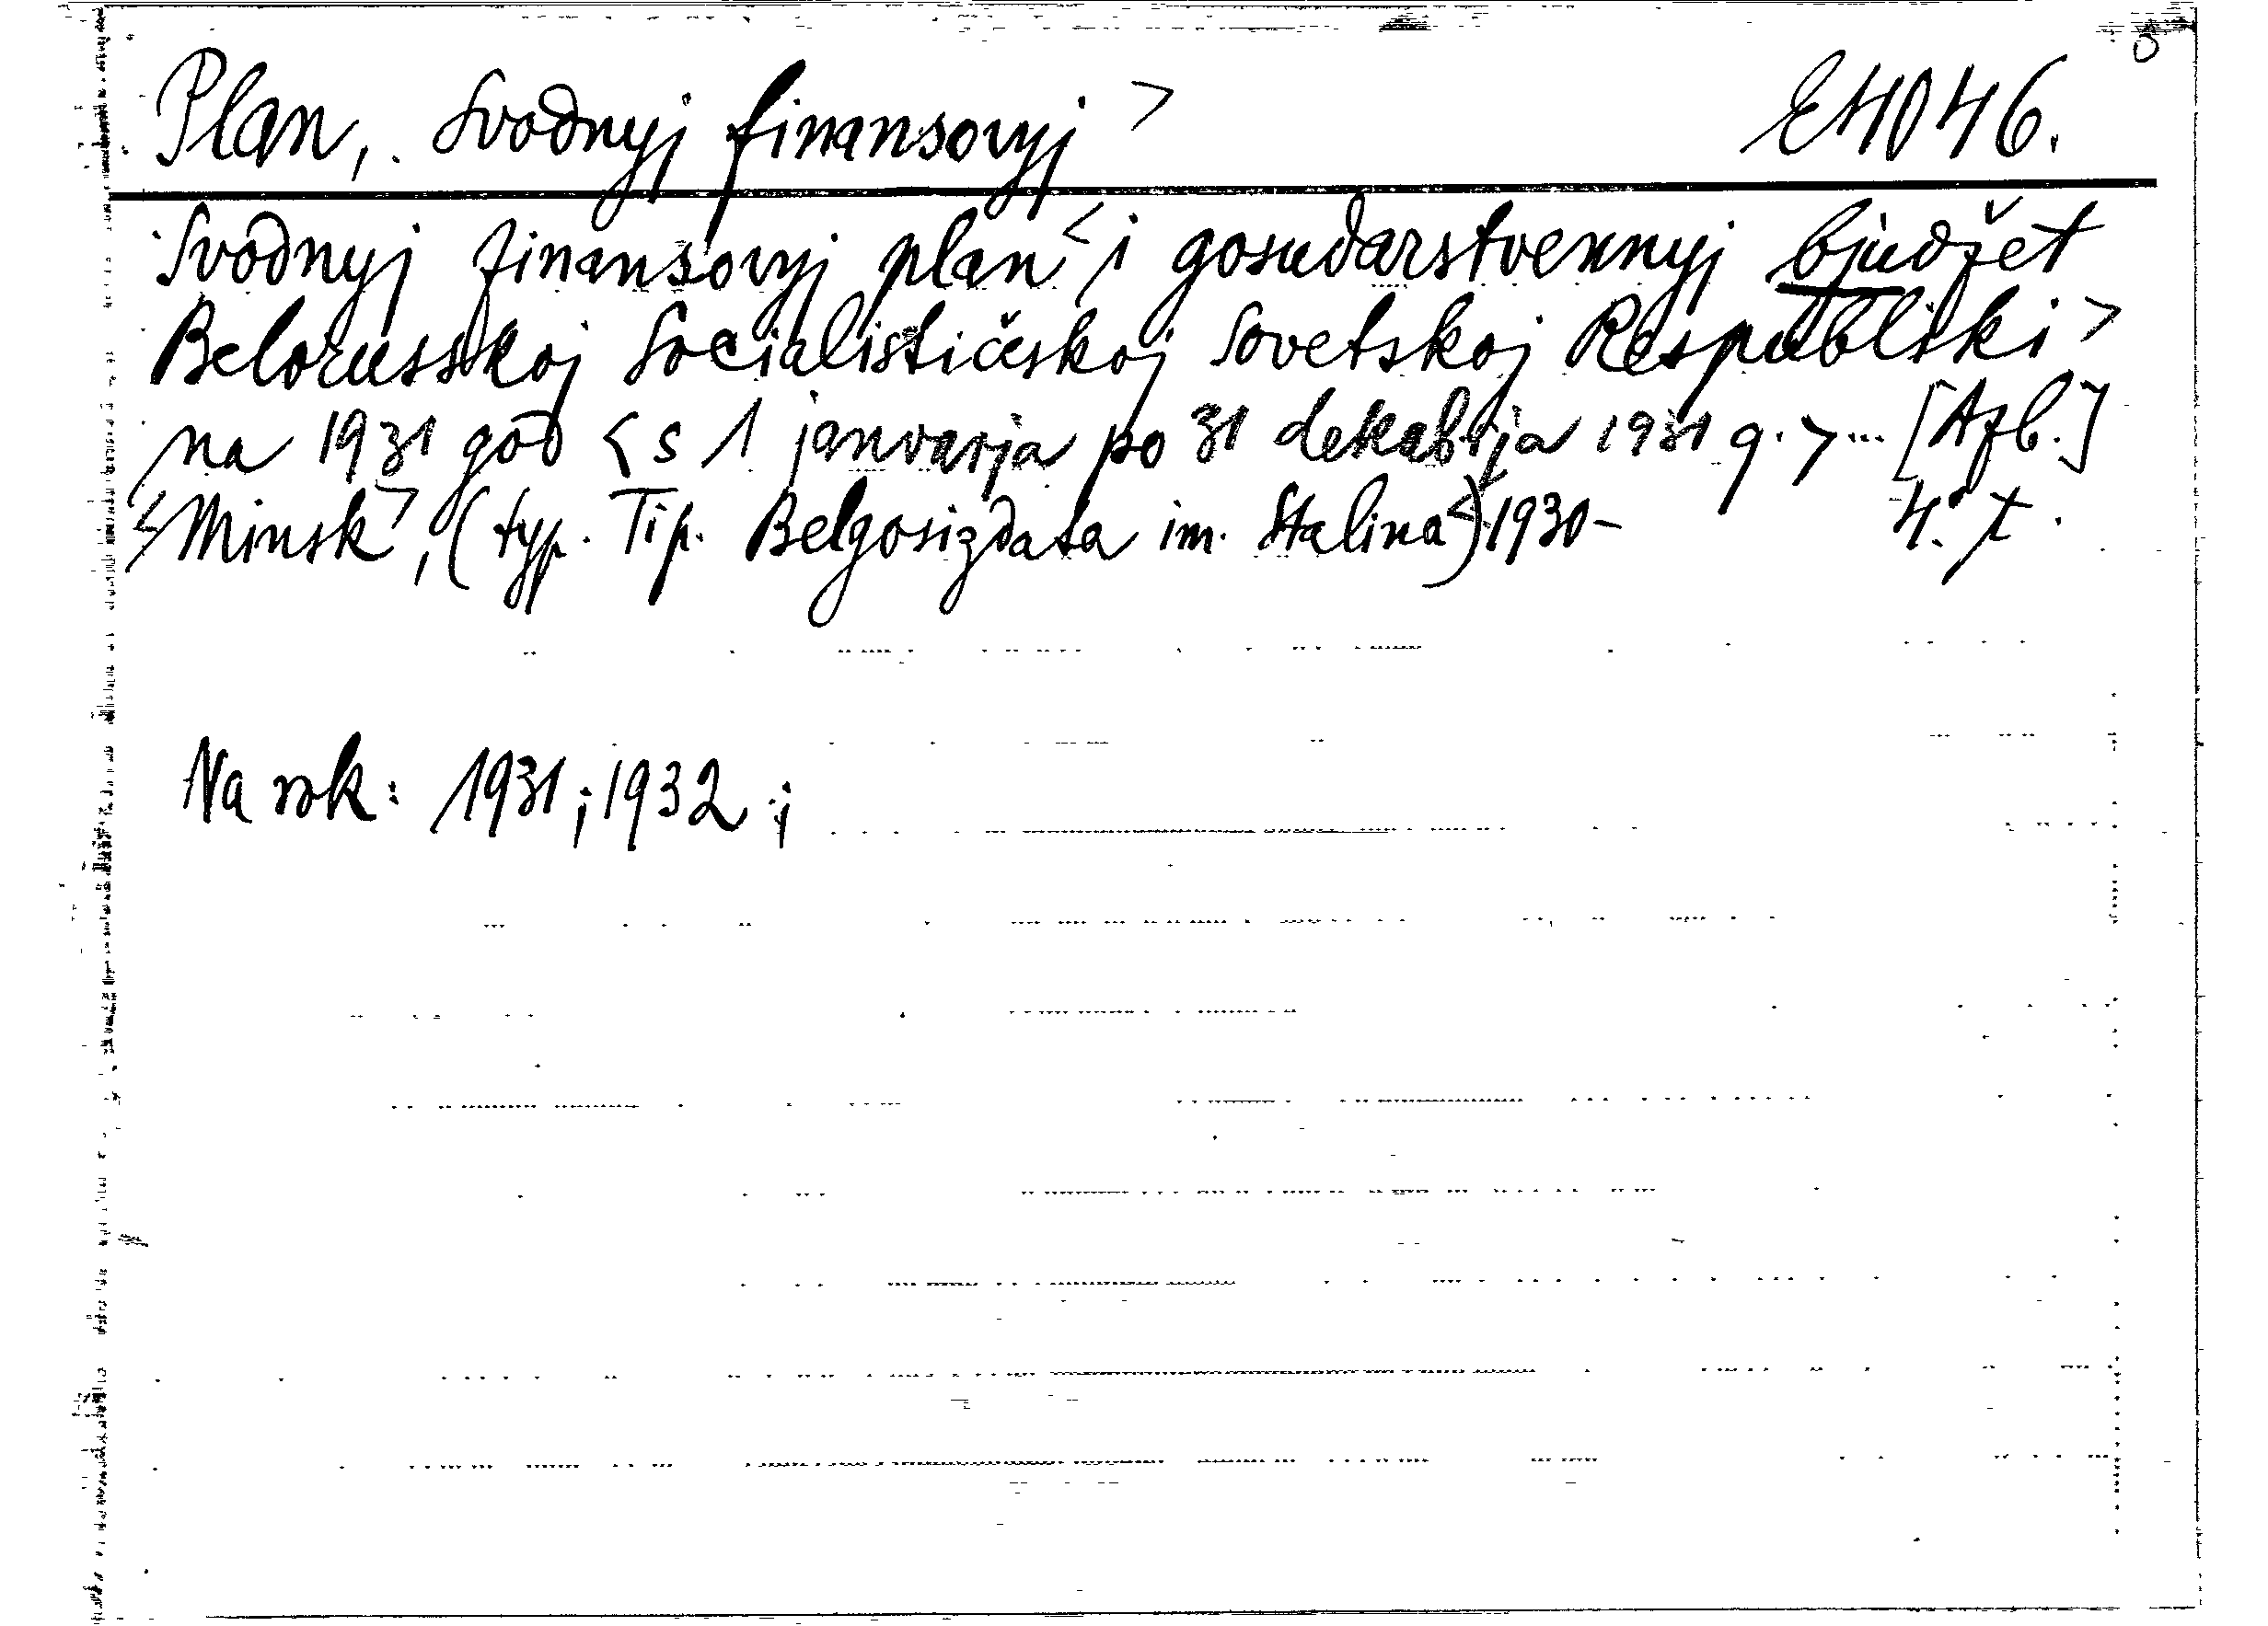 Plan, . Svodnyj finansovyj > E 4046.
Svodnyj finansovyj plan < i gosudarstvennyj bjudžet
Belorusskoj Socialističeskoj Sovetskoj Respubliki >
na 1931 god < s 1 janvarja po 31 dekabrja 1931 g. > ... [Azb.]
< Minsk >, (typ. Tip. Belgosizdata im. Stalina <) 1930- 4.° t.
Na rok: 1931; 1932;